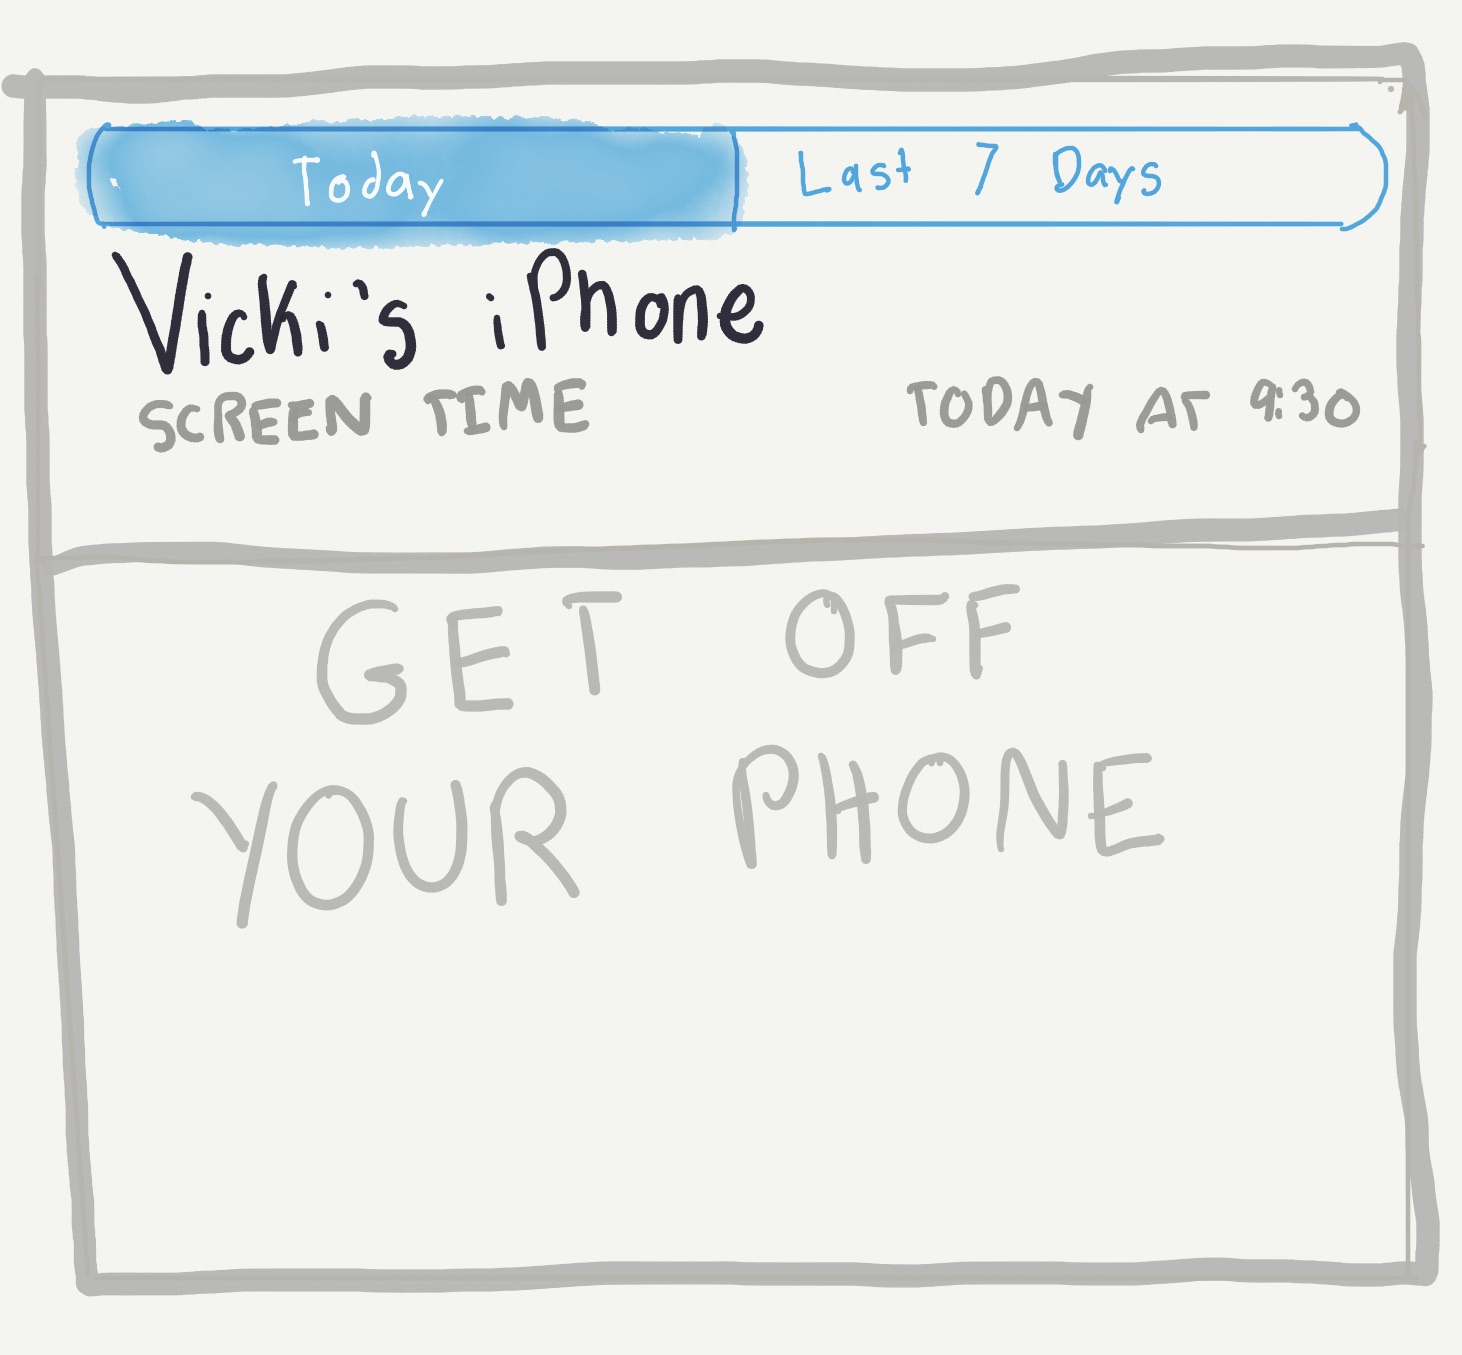 Today Last 7 Days
Vicki's iPhone
SCREEN TIME TODAY AT 9:30
GET OFF
YOUR PHONE